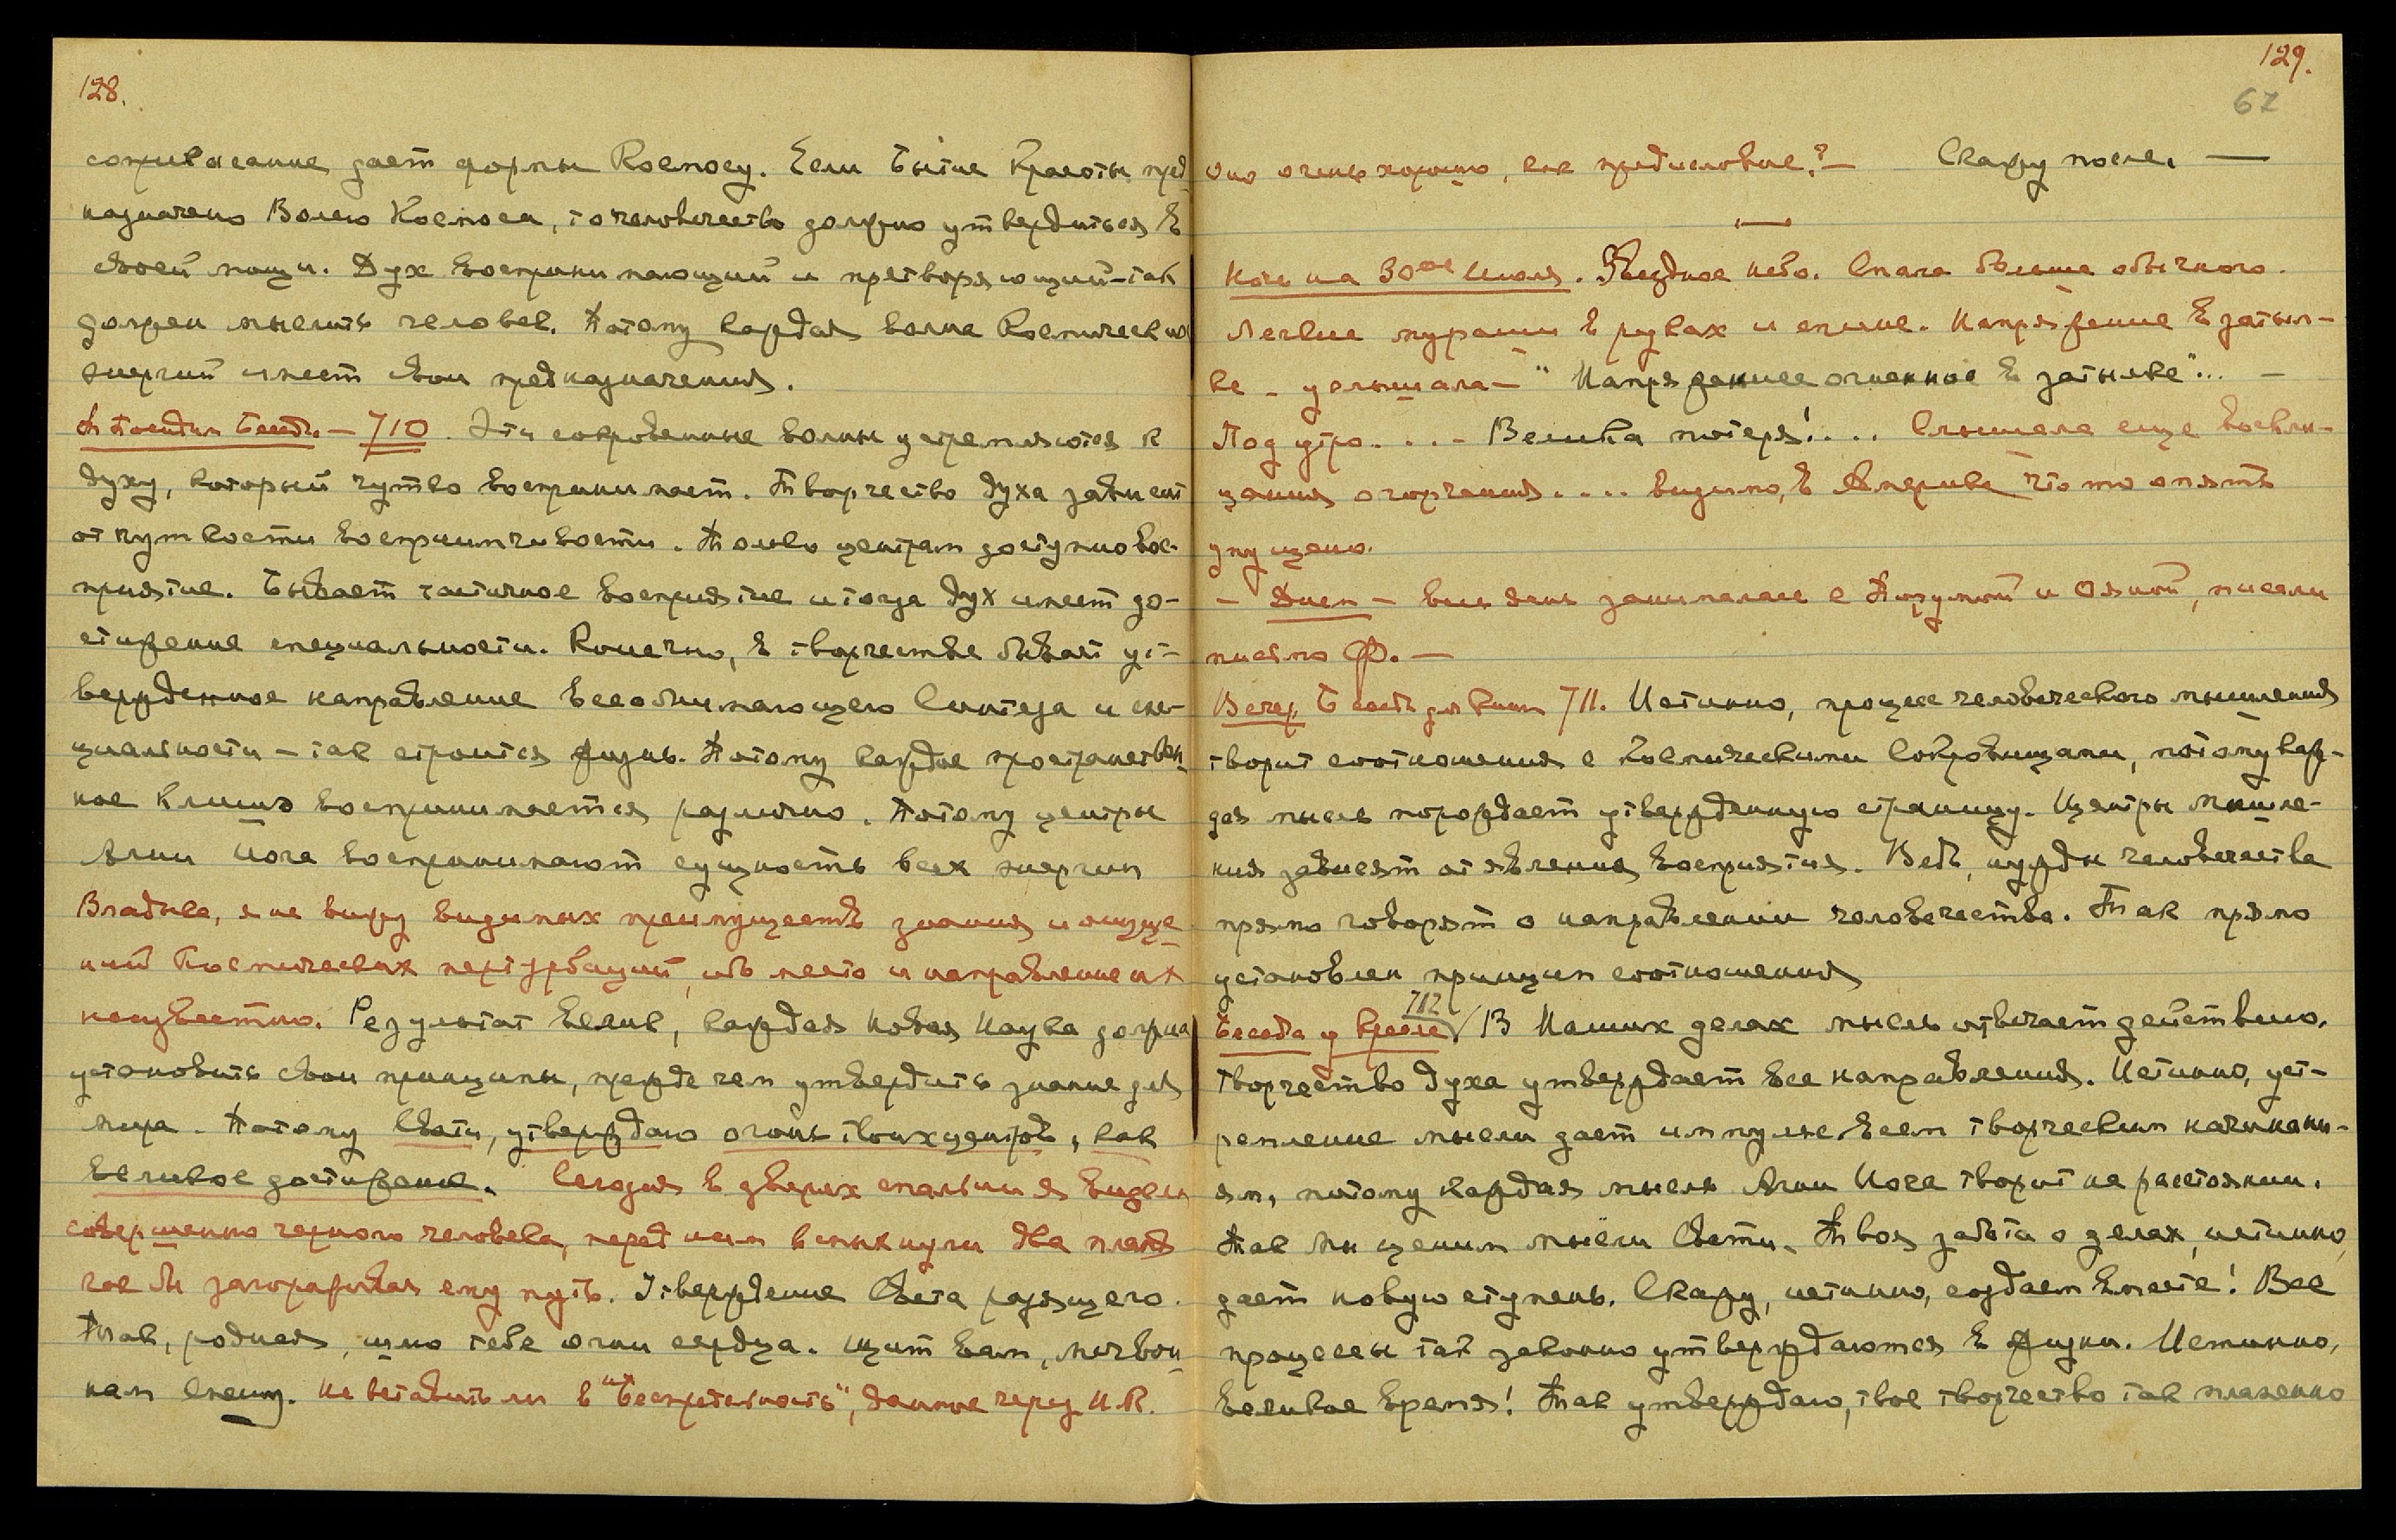 128.
сочувствание дает формы Космосу. Если Бытие Красоты пред-
назначено Волею Космоса, то человечество должно утвердиться в
своей мощи. Дух воспринимающий и претворяющий – так
должен мыслить человек. Потому каждая волна Космических
энергий имеет свои предназначения.
710. Эти сокровенные волны устремляются к
духу, который чутко воспринимает. Творчество духа зависит
от чуткости восприимчивости. Только центрам доступно вос-
приятие. Бывает частичное восприятие и тогда дух имеет до-
стижение специальности. Конечно, в творчестве бывает ут-
вержденное направление Всеобнимающего Синтеза и спе-
циальности – так строится жизнь. Потому каждое пространствен-
ное воспринимается различно. Потому центры
Агни Йога воспринимают сущность всех энергий
Владыка, я не вижу видимых преимуществ знания и ощуще-
ний Космических пертурбаций, ибо место и направление их
неизвестно. Результат велик, каждая новая Наука должна
установить свои принципы, прежде чем утвердить знание для
мира. Потому Свати, утверждаю огонь твоих центров, как
великое достижение. Сегодня в дверях спальни я видела
совершенно черного человека, перед ним вспыхнули два пламя
как бы загораживая ему путь. Утверждение Света разящего.
Так, родная, шлю тебе огни сердца. Щит вам,
нам спешу. Не вставить ли в "Беспредельность", данное через Н.К.
129.
67
Оно очень хорошо, как предисловие? – Скажу после. —
—
Ночь на 30ое Июля. Звездное небо. Спала больше обычного.
Легкие мураши в руках и спине. Напряжение в затыл-
ке – услышала – "Напряжение огненное в затылке"... –
Под утро.... – Велика потеря!.... Слышала еще воскли-
цания огорчения.... видимо, в Америке что то опять
упущено.
– Днем – весь день занималась с Порумой и Ояной, писали
письмо Ф. —
Вечер, 711. Истинно, процесс человеческого мышления
творит соотношения с Космическими Сокровищами, потому каж-
дая мысль порождает утвержденную страницу. Центры мышле-
ния зависят от явления восприятия. Ведь, нужды человечества
прямо говорят о направлении человечества. Так прямо
установлен принцип соотношения
712
Беседа у кресла В Наших делах мысль отвечает действию.
Творчество духа утверждает все направления. Истинно, уст-
ремление мысли дает импульс всем творческим начинани-
ям, потому каждая мысль Агни Йога творит на расстоянии.
Так Мы ценим мысли Свати. Твоя забота о делах, истинно,
дает новую ступень. Скажу, истинно, создаем вместе! Все
процессы так законно утверждаются в жизни. Истинно,
великое время! Так утверждаю, твое творчество так пламенно